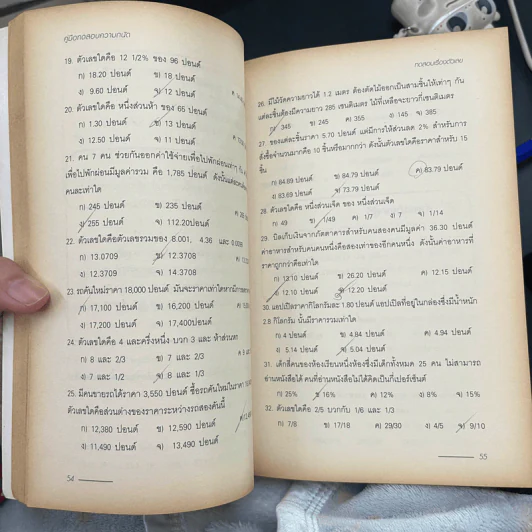 คู่มือทดสอบความถนัด
19. ตัวเลขใดคือ 12 1/2% ของ 96 ปอนด์
ก) 18.20 ปอนด์ ข) 18 ปอนด์
ง) 9.60 ปอนด์ จ) 12 ปอนด์
20. ตัวเลขใดคือ หนึ่งส่วนห้า ของ 65 ปอนด์
ก) 1.30 ปอนด์ ข) 13 ปอนด์
ง) 12.50 ปอนด์ จ) 11 ปอนด์
21. คน 7 คน ช่วยกันออกค่าใช้จ่ายเพื่อไปพักผ่อนเท่าๆ กัน
เพื่อไปพักผ่อนมีมูลค่ารวม คือ 1,785 ปอนด์ ดังนั้นแต่ละคน
คนละเท่าใด
ก) 245 ปอนด์ ข) 235 ปอนด์
ง) 255 ปอนด์ จ) 112.20ปอนด์
22. ตัวเลขใดคือตัวเลขรวมของ 8.001, 4.36 และ
ก) 13.0709 ข) 12.3708
ง) 12.3709 จ) 14.3708
23. รถคันใหม่ราคา 18,000 ปอนด์ มันจะราคาเท่าใดหากมีการ
ก) 17,100 ปอนด์ ข) 16,200 ปอนด์
ง) 17,200 ปอนด์ จ) 17,400ปอนด์
24. ตัวเลขใดคือ 4 และครึ่งหนึ่ง บวก 3 และ ห้าส่วนหก
ก) 8 และ 2/3 ข) 7 และ 2/3
ง) 7 และ 1/2 จ) 8 และ 1/3
25. มีคนขายรถได้ราคา 3,550 ปอนด์ ซื้อรถคันใหม่ในราคา
ตัวเลขใดคือส่วนต่างของราคาระหว่างรถสองคันนี้
ก) 12,380 ปอนด์ ข) 12,590 ปอนด์
ง) 11,490 ปอนด์ จ) 13,490 ปอนด์
54
ทดสอบเรื่องตัวเลข
26. มีไม้วัดความยาวได้ 1.2 เมตร ต้องตัดไม้ออกเป็นสามชิ้นให้เท่าๆ กัน
แต่ละชิ้นต้องมีความยาว 285 เซนติเมตร ไม้ที่เหลือจะยาวกี่เซนติเมตร
ก) 345 ข) 245 ค) 355 ง) 145 จ) 385
27. ของแต่ละชิ้นราคา 5.70 ปอนด์ แต่มีการให้ส่วนลด 2% สำหรับการ
สั่งซื้อจำนวนมากคือ 10 ชิ้นหรือมากกว่า ดังนั้นตัวเลขใดคือราคาสำหรับ 15
ชิ้น
ก) 84.89 ปอนด์ ข) 84.79 ปอนด์ ค) 83.79 ปอนด์
ง) 83.69 ปอนด์ จ) 73.79 ปอนด์
28. ตัวเลขใดคือ หนึ่งส่วนเจ็ด ของ หนึ่งส่วนเจ็ด
ก) 49 ข) 1/49 ค) 1/7 ง) 7 จ) 1/14
29. บิลเก็บเงินจากภัตตาคารสำหรับคนสองคนมีมูลค่า 36.30 ปอนด์
ค่าอาหารสำหรับคนคนหนึ่งคือสองเท่าของอีกคนหนึ่ง ดังนั้นค่าอาหารที่
ราคาถูกกว่าคือเท่าใด
ก) 13.10 ปอนด์ ข) 26.20 ปอนด์ ค) 12.15 ปอนด์
ง) 12.10 ปอนด์ จ) 12.20 ปอนด์
30. แอปเปิลราคากิโลกรัมละ 1.80 ปอนด์ แอปเปิลที่อยู่ในกล่องซึ่งมีน้ำหนัก
2.8 กิโลกรัม นั้นมีราคารวมเท่าใด
ก) 4 ปอนด์ ข) 4.84 ปอนด์ ค) 4.94 ปอนด์
ง) 5.14 ปอนด์ จ) 5.04 ปอนด์
31. เด็กสี่คนของห้องเรียนหนึ่งห้องซึ่งมีเด็กทั้งหมด 25 คน ไม่สามารถ
อ่านหนังสือได้ คนที่อ่านหนังสือไม่ได้คิดเป็นกี่เปอร์เซ็นต์
ก) 25% ข) 16% ค) 12% ง) 8% จ) 15%
32. ตัวเลขใดคือ 2/5 บวกกับ 1/6 และ 1/3
ก) 7/8 ข) 17/18 ค) 29/30 ง) 4/5 จ) 9/10
55